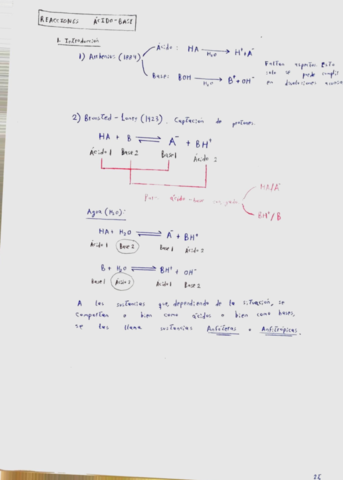 REACCIONES ÁCIDO-BASE
1. Introducción
1) Arrhenius (1887)
Ácido: HA → H⁺ + A⁻
H₂O
Base: BOH → B⁺ + OH⁻
H₂O
solo se puede
en disoluciones acuosas
2) Brønsted-Lowry (1923). Captación de protones.
HA + B ⇌ A⁻ + BH⁺
Ácido 1 Base 2 Base 1 Ácido 2
Pares ácido-base conjugados
HA/A⁻
BH⁺/B
Agua (H₂O):
HA + H₂O ⇌ A⁻ + BH⁺
Ácido 1 Base 2 Base 1 Ácido 2
B + H₂O ⇌ BH⁺ + OH⁻
Base 1 Ácido 2 Ácido 1 Base 2
A las sustancias que dependiendo de la situación, se
comportan o bien como ácidos o bien como bases,
se les llama sustancias Anfóteras o Anfipróticas.
26